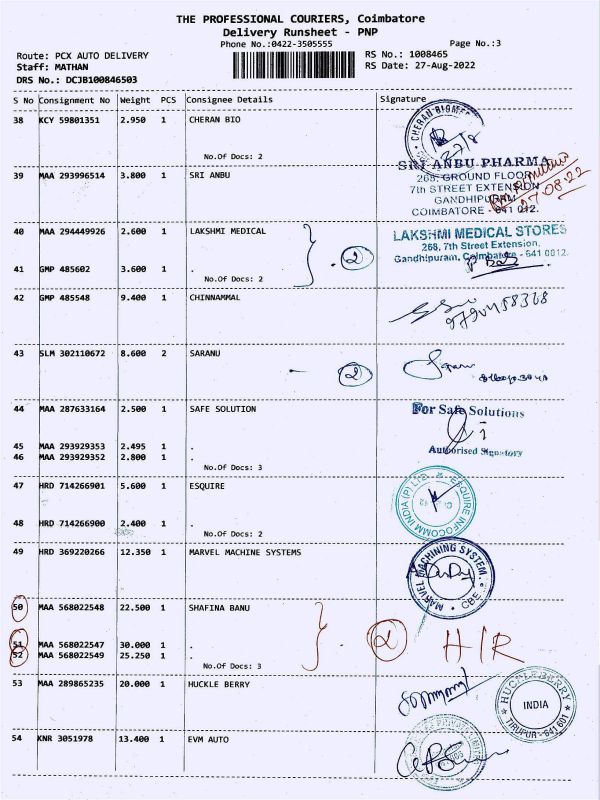 THE PROFESSIONAL COURIERS, Coimbatore
Delivery Runsheet - PNP
Phone No.:0422-3505555 Page No.:3
Route: PCX AUTO DELIVERY RS No.: 1008465
Staff: MATHAN RS Date: 27-Aug-2022
DRS No.: DCJB100846503
S No Consignment No Weight PCS Consignee Details Signature
38 KCY 59801351 2.950 1 CHERAN BIO
CHERAN BIOMED
No.Of Docs: 2
39 MAA 293996514 3.800 1 SRI ANBU
SRI ANBU PHARMA
268, GROUND FLOOR
7th STREET EXTENSION
GANDHIPURAM
COIMBATORE - 641 012.
27-08-22
40 MAA 294449926 2.600 1 LAKSHMI MEDICAL
LAKSHMI MEDICAL STORES
268, 7th Street Extension,
Gandhipuram, Coimbatore - 641 0012.
2
41 GMP 485602 3.600 1 .
No.Of Docs: 2
42 GMP 485548 9.400 1 CHINNAMMAL
43 SLM 302110672 8.600 2 SARANU
2
44 MAA 287633164 2.500 1 SAFE SOLUTION
For Safe Solutions
45 MAA 293929353 2.495 1 .
46 MAA 293929352 2.800 1 .
Authorised Signatory
No.Of Docs: 3
47 HRD 714266901 5.600 1 ESQUIRE
ESQUIRE INFOCOMM INDIA (P) LTD.
48 HRD 714266900 2.400 1 .
No.Of Docs: 2
49 HRD 369220266 12.350 1 MARVEL MACHINE SYSTEMS
MARVEL MACHINING SYSTEM.
CBE
50 MAA 568022548 22.500 1 SHAFINA BANU
51 MAA 568022547 30.000 1 .
2 H/R
52 MAA 568022549 25.250 1 .
No.Of Docs: 3
53 MAA 289865235 20.000 1 HUCKLE BERRY
HUCKLEBERRY
INDIA
TIRUPUR - 641 601
54 KNR 3051978 13.400 1 EVM AUTO